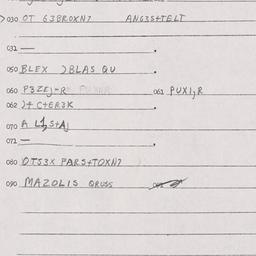 030 OT G3BROXN7 ANG3S+TELT
031 —
050 BLEX )BLAS QU
060 P3ZEJ=R 061 PUX1,R
062 )+ C+ER3K
070 A
071 —
080 OTS3X PARS+TOXN7
090 MAZOLIS QRUSS